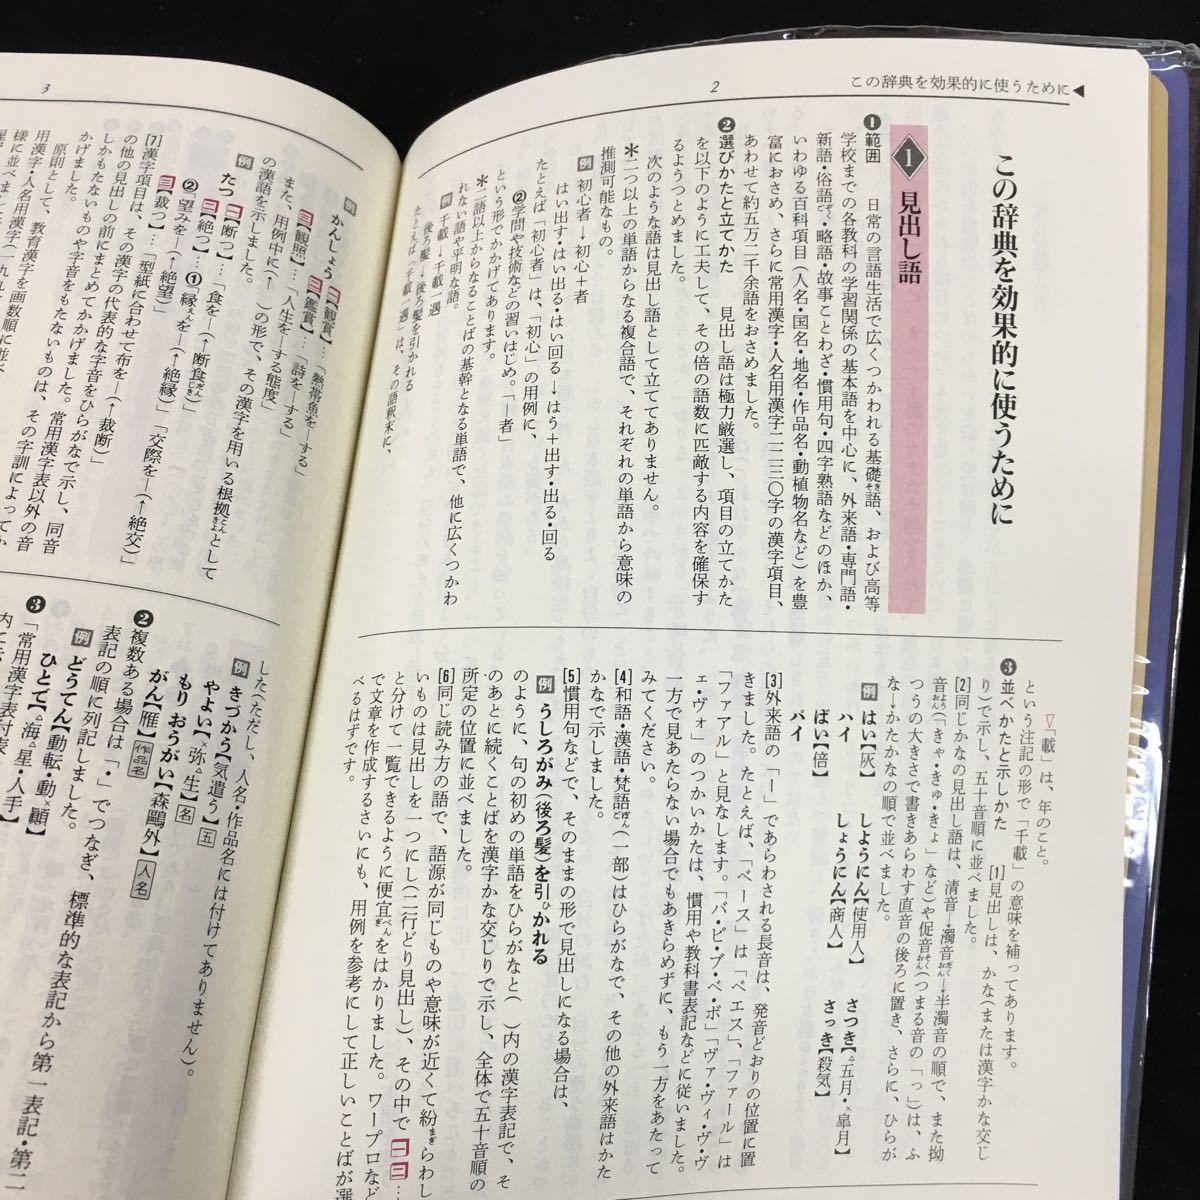 この辞典を効果的に使うために◀
2
この辞典を効果的に使うために
1 見出し語
❶範囲　日常の言語生活で広くつかわれる基礎語、および高等
学校までの各教科の学習関係の基本語を中心に、外来語・専門語・
新語・俗語・略語・故事ことわざ・慣用句・四字熟語などのほか、
いわゆる百科項目(人名・国名・地名・作品名・動植物名など)を豊
富におさめ、さらに常用漢字・人名用漢字二二三〇字の漢字項目、
あわせて約五万二千余語をおさめました。
❷選びかたと立てかた　見出し語は極力厳選し、項目の立てかた
を以下のように工夫して、その倍の語数に匹敵する内容を確保す
るようつとめました。
次のような語は見出し語として立ててありません。
＊二つ以上の単語からなる複合語で、それぞれの単語から意味の
推測可能なもの。
例 初心者→初心＋者
はい出す・はい出る・はい回る→はう＋出す・出る・回る
たとえば「初心者」は、「初心」の用例に、
②学問や技術などの習いはじめ。「―者」
という形でかかげてあります。
＊二語以上からなることばの基幹となる単語で、他に広くつかわ
れない語や平明な語。
例 千載→千載一遇
後ろ髪→後ろ髪を引かれる
たとえば「千載一遇」は、その語釈末に、
▽「載」は、年のこと。
という注記の形で「千載」の意味を補ってあります。
❸並べかたと示しかた　[1]見出しは、かな(または漢字かな交じ
り)で示し、五十音順に並べました。
[2]同じかなの見出し語は、清音→濁音→半濁音の順で、また拗
音(「きゃ・きゅ・きょ」など)や促音(つまる音の「っ」)は、ふ
つうの大きさで書きあらわす直音の後ろに置き、さらに、ひらが
な→かたかなの順で並べました。
例 はい【灰】　しようにん【使用人】　さつき【△五月・×皐月】
ハイ　しょうにん【商人】　さっき【殺気】
ばい【倍】
パイ
[3]外来語の「ー」であらわされる長音は、発音どおりの位置に置
きました。たとえば、「ベース」は「ベエス」、「ファール」は
「ファアル」と見なします。「バ・ビ・ブ・ベ・ボ」「ヴァ・ヴィ・ヴ・ヴ
ェ・ヴォ」のつかいかたは、慣用や教科書表記などに従いました。
一方で見あたらない場合でもあきらめずに、もう一方をあたって
みてください。
[4]和語・漢語・梵語(一部)はひらがなで、その他の外来語はかた
かなで示しました。
[5]慣用句などで、そのままの形で見出しになる場合は、
例 うしろがみ(後ろ髪)を引かれる
のように、句の初めの単語をひらがなと(　)内の漢字表記で、そ
のあとに続くことばを漢字かな交じりで示し、全体で五十音順の
所定の位置に並べました。
[6]同じ読み方の語で、語源が同じものや意味が近くて紛らわし
いものは見出しを一つにし(二行どり見出し)、その中で 一 二…
と分けて一覧できるように便宜をはかりました。ワープロなど
で文章を作成するさいにも、用例を参考にして正しいことばが選
べるはずです。
3
例 かんしょう 一【観賞】…「熱帯魚を―する」
二【鑑賞】…「詩を―する」
三【観照】…「人生を―する態度」
また、用例中に(←　)の形で、その漢字を用いる根拠として
の漢語を示しました。
例 たつ 一【断つ】…「食を―(←断食)」
二【絶つ】…①「縁を―(←絶縁)」「交際を―(←絶交)」
②「望みを―(←絶望)」
三【裁つ】…「型紙に合わせて布を―(←裁断)」
[7]漢字項目は、その漢字の代表的な字音をひらがなで示し、同音
の他の見出しの前にまとめてかかげました。常用漢字表以外の音
しかもたないものや字音をもたないものは、その字訓によってか
かげました。
原則として、教育漢字を画数順に並べ
したただし、人名・作品名には付けてありません)。
例 きづかう【気遣う】五
やよい【×弥△生】名
もり おうがい【森鷗外】人名
がん【雁】作品名
❷複数ある場合は「・」でつなぎ、標準的な表記から第一表記・第二
表記の順に列記しました。
例 どうてん【動転・動×顚】
ひとで【△海△星・人手】
❸「常用漢字表付表